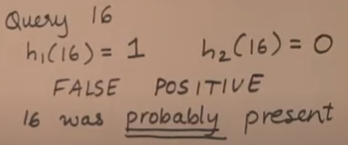 Query 16
h₁(16) = 1 h₂(16) = 0
FALSE POSITIVE
16 was probably present